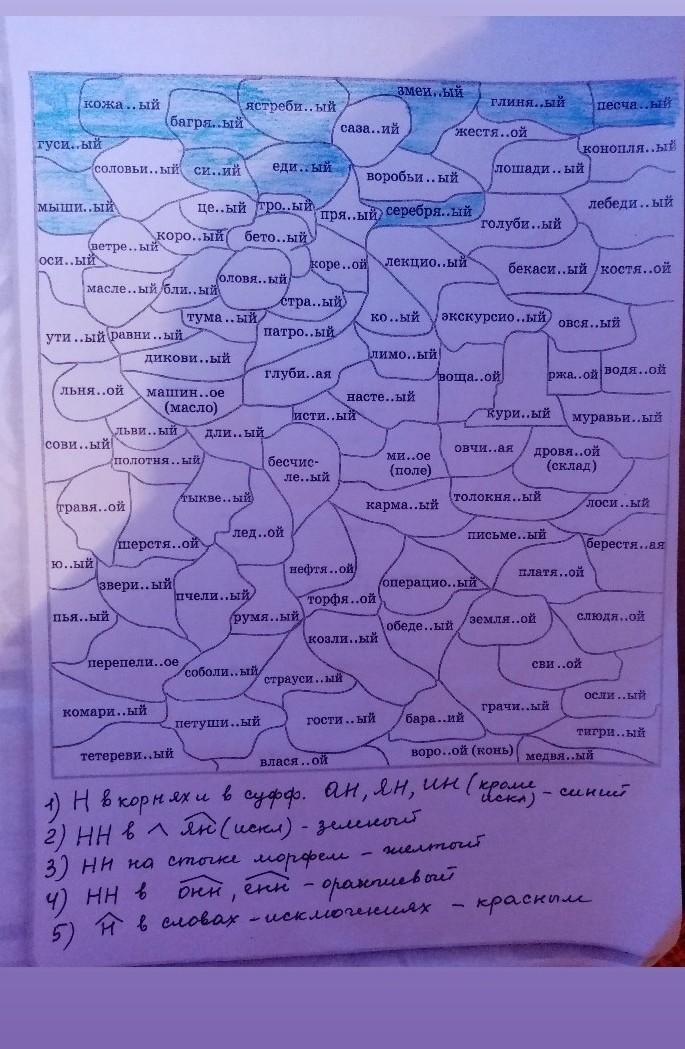 кожа..ый
багря..ый
ястреби..ый
змеи..ый
глиня..ый
песча..ый
саза..ий
жестя..ой
гуси..ый
соловьи..ый
си..ий
еди..ый
воробьи..ый
лошади..ый
конопля..ый
мыши..ый
це..ый
тро..ый
пря..ый
серебря..ый
голуби..ый
лебеди..ый
ветре..ый
коро..ый
бето..ый
оси..ый
масле..ый
бли..ый
оловя..ый
коре..ой
лекцио..ый
бекаси..ый
костя..ой
стра..ый
тума..ый
ко..ый
экскурсио..ый
овся..ый
ути..ый
равни..ый
патро..ый
дикови..ый
лимо..ый
глуби..ая
воща..ой
ржа..ой
водя..ой
льня..ой
машин..ое
(масло)
насте..ый
исти..ый
кури..ый
муравьи..ый
сови..ый
льви..ый
дли..ый
полотня..ый
бесчис-
ле..ый
ми..ое
(поле)
овчи..ая
дровя..ой
(склад)
травя..ой
тыкве..ый
карма..ый
толокня..ый
лоси..ый
шерстя..ой
лед..ой
письме..ый
берестя..ая
ю..ый
звери..ый
пчели..ый
нефтя..ой
операцио..ый
платя..ой
торфя..ой
пья..ый
румя..ый
козли..ый
обеде..ый
земля..ой
слюдя..ой
перепели..ое
соболи..ый
страуси..ый
сви..ой
осли..ый
комари..ый
петуши..ый
гости..ый
бара..ий
грачи..ый
тигри..ый
тетереви..ый
влася..ой
воро..ой (конь)
медвя..ый
1) Н в корнях и в суфф. АН, ЯН, ИН (кроме искл) - синий
2) НН в ^ ЯН (искл) - зеленый
3) НН на стыке морфем - желтый
4) НН в ОНН, ЕНН - оранжевый
5) Н в словах - исключениях - красным